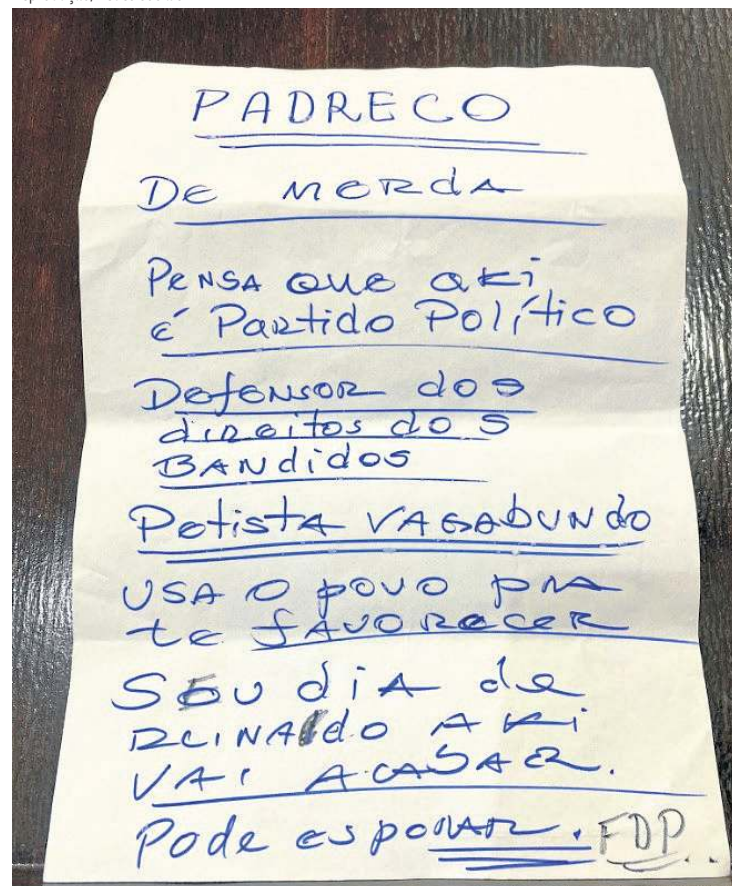 PADRECO
DE MERDA
PENSA QUE AKI
é Partido Político
Defensor dos
direitos dos
BANdidos
Petista VAGAbUNdo
USA O povo pRA
te fAVORecer
SEU diA de
REINAdo AKi
VAi AcAbAR.
Pode espeRAR. FDP..